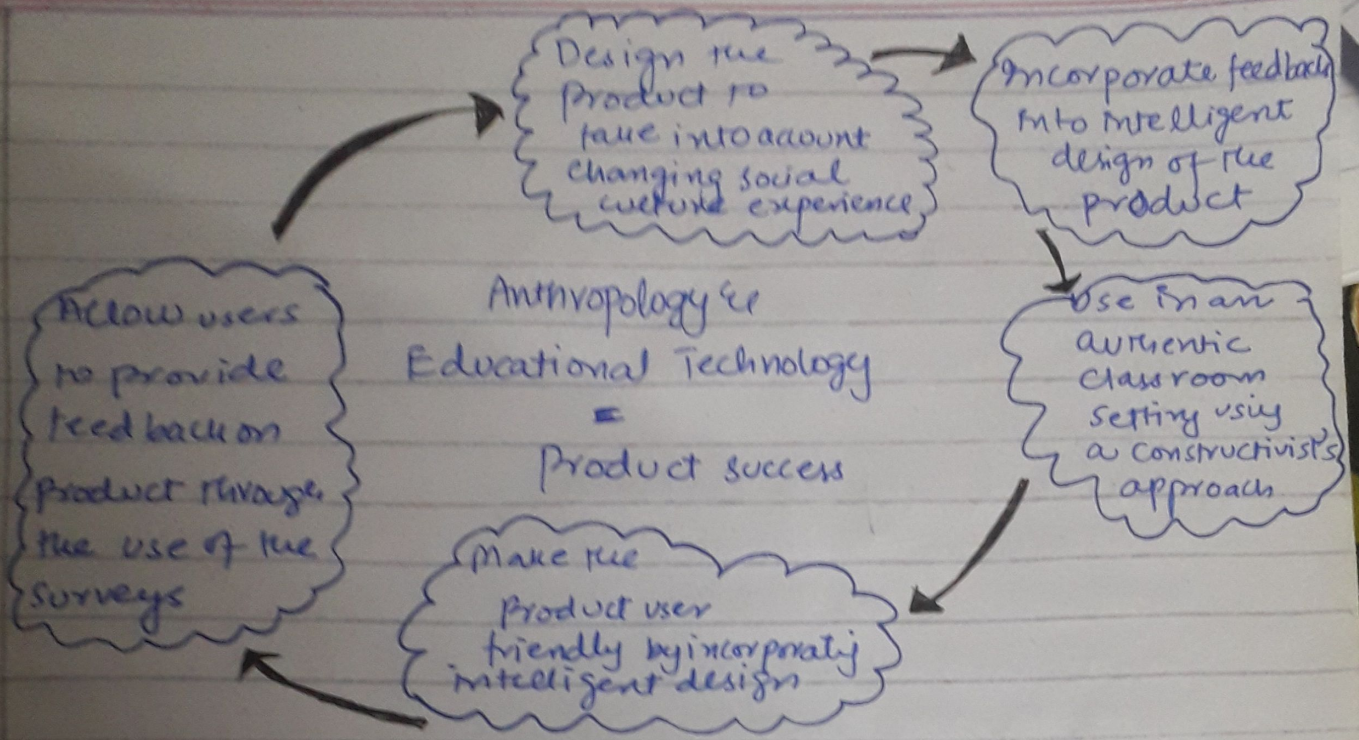 Design the
product to
take into account
changing social
culture experience
Incorporate feedback
into intelligent
design of the
product
Use in an
authentic
classroom
setting using
a constructivist's
approach
Make the
product user
friendly by incorporating
intelligent design
Allow users
to provide
feedback on
product through
the use of the
surveys
Anthropology &
Educational Technology
=
Product success